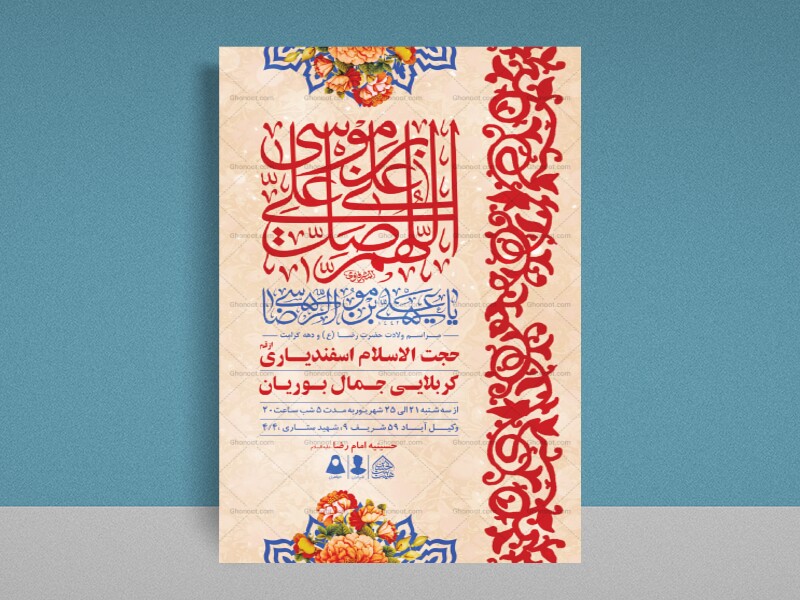 اللهم صل علی علی بن موسی
یا علی بن موسی الرضا
مراسم ولادت حضرت رضا (ع) و دهه کرامت
حجت الاسلام اسفندیاری از قم
کربلایی جمال بوریان
از سه شنبه ۲۱ الی ۲۵ شهریور به مدت ۵ شب ساعت ۲۰
وکیل آباد ۵۹ شریف ۹، شهید ستاری ۴/۴۰
حسینیه امام رضا علیه السلام
Ghonoot.com